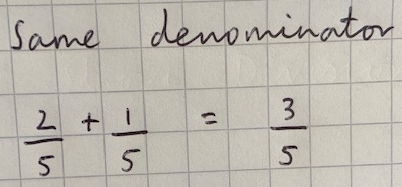 Same denominator
2/5 + 1/5 = 3/5